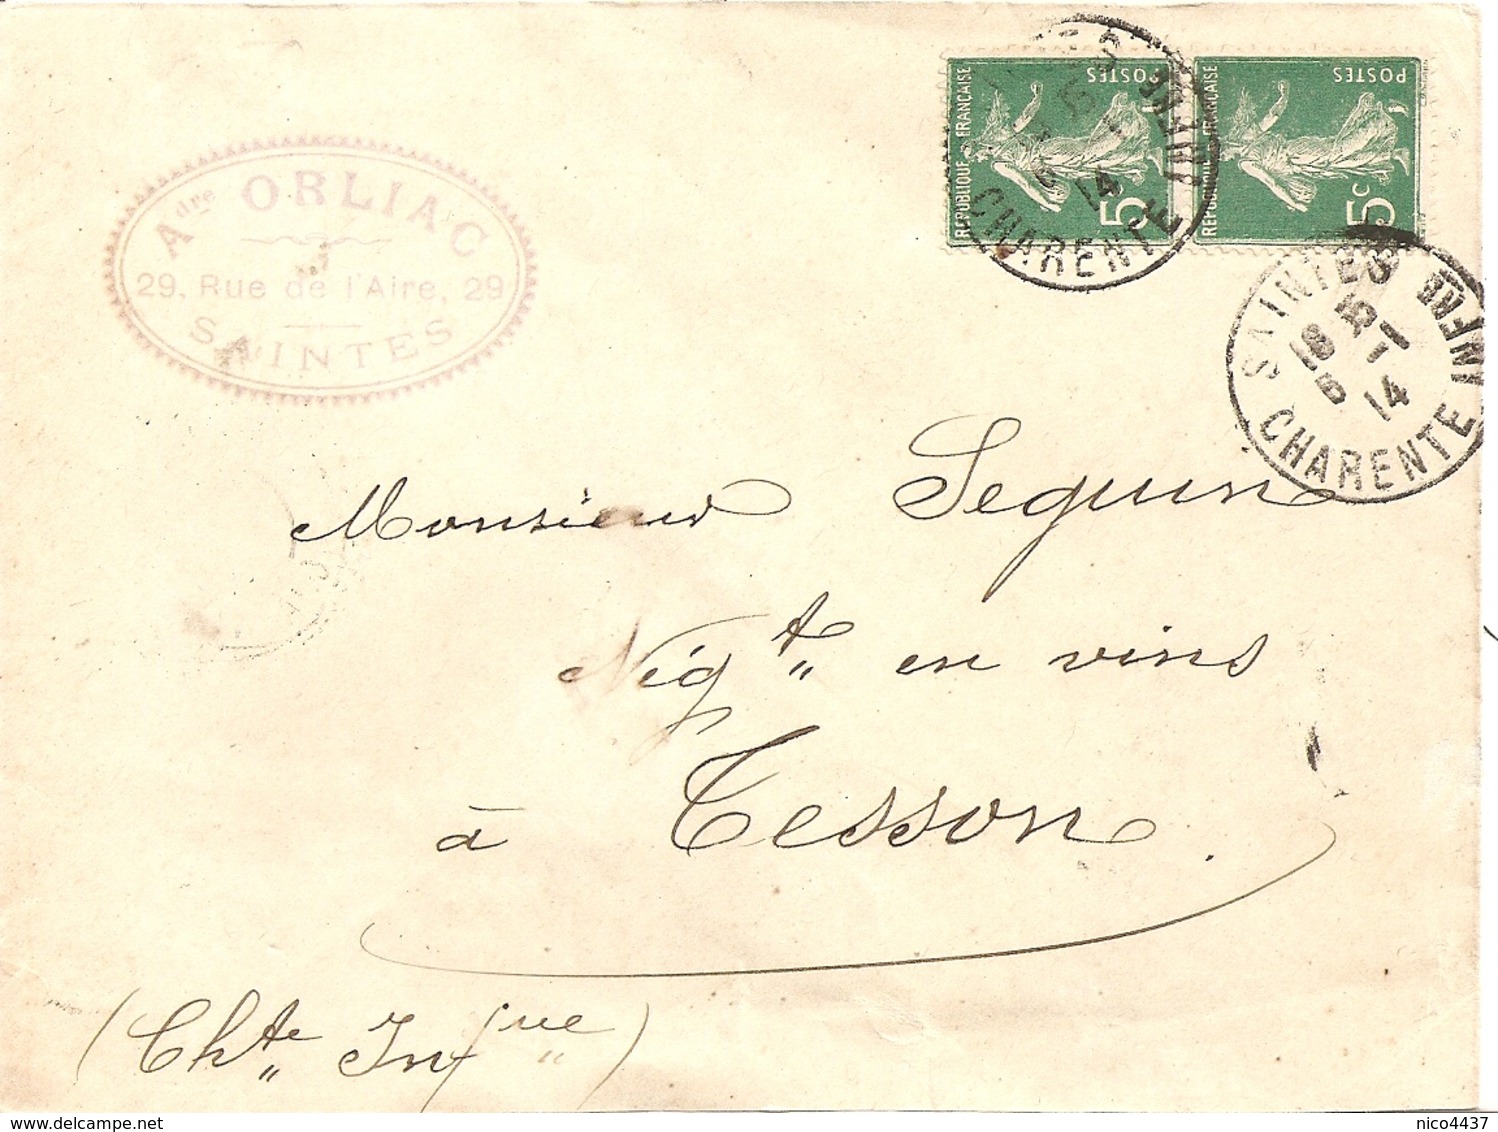 Adre ORLIAC
29, Rue de l'Aire, 29
SAINTES
RÉPUBLIQUE FRANÇAISE
POSTES
5c
RÉPUBLIQUE FRANÇAISE
POSTES
5c
CHARENTE INFRE
14
SAINTES
5 14
CHARENTE INFRE
Monsieur Seguin
Négt en vins
à Tesson.
(Chte Infre)
delcampe.net
nico4437